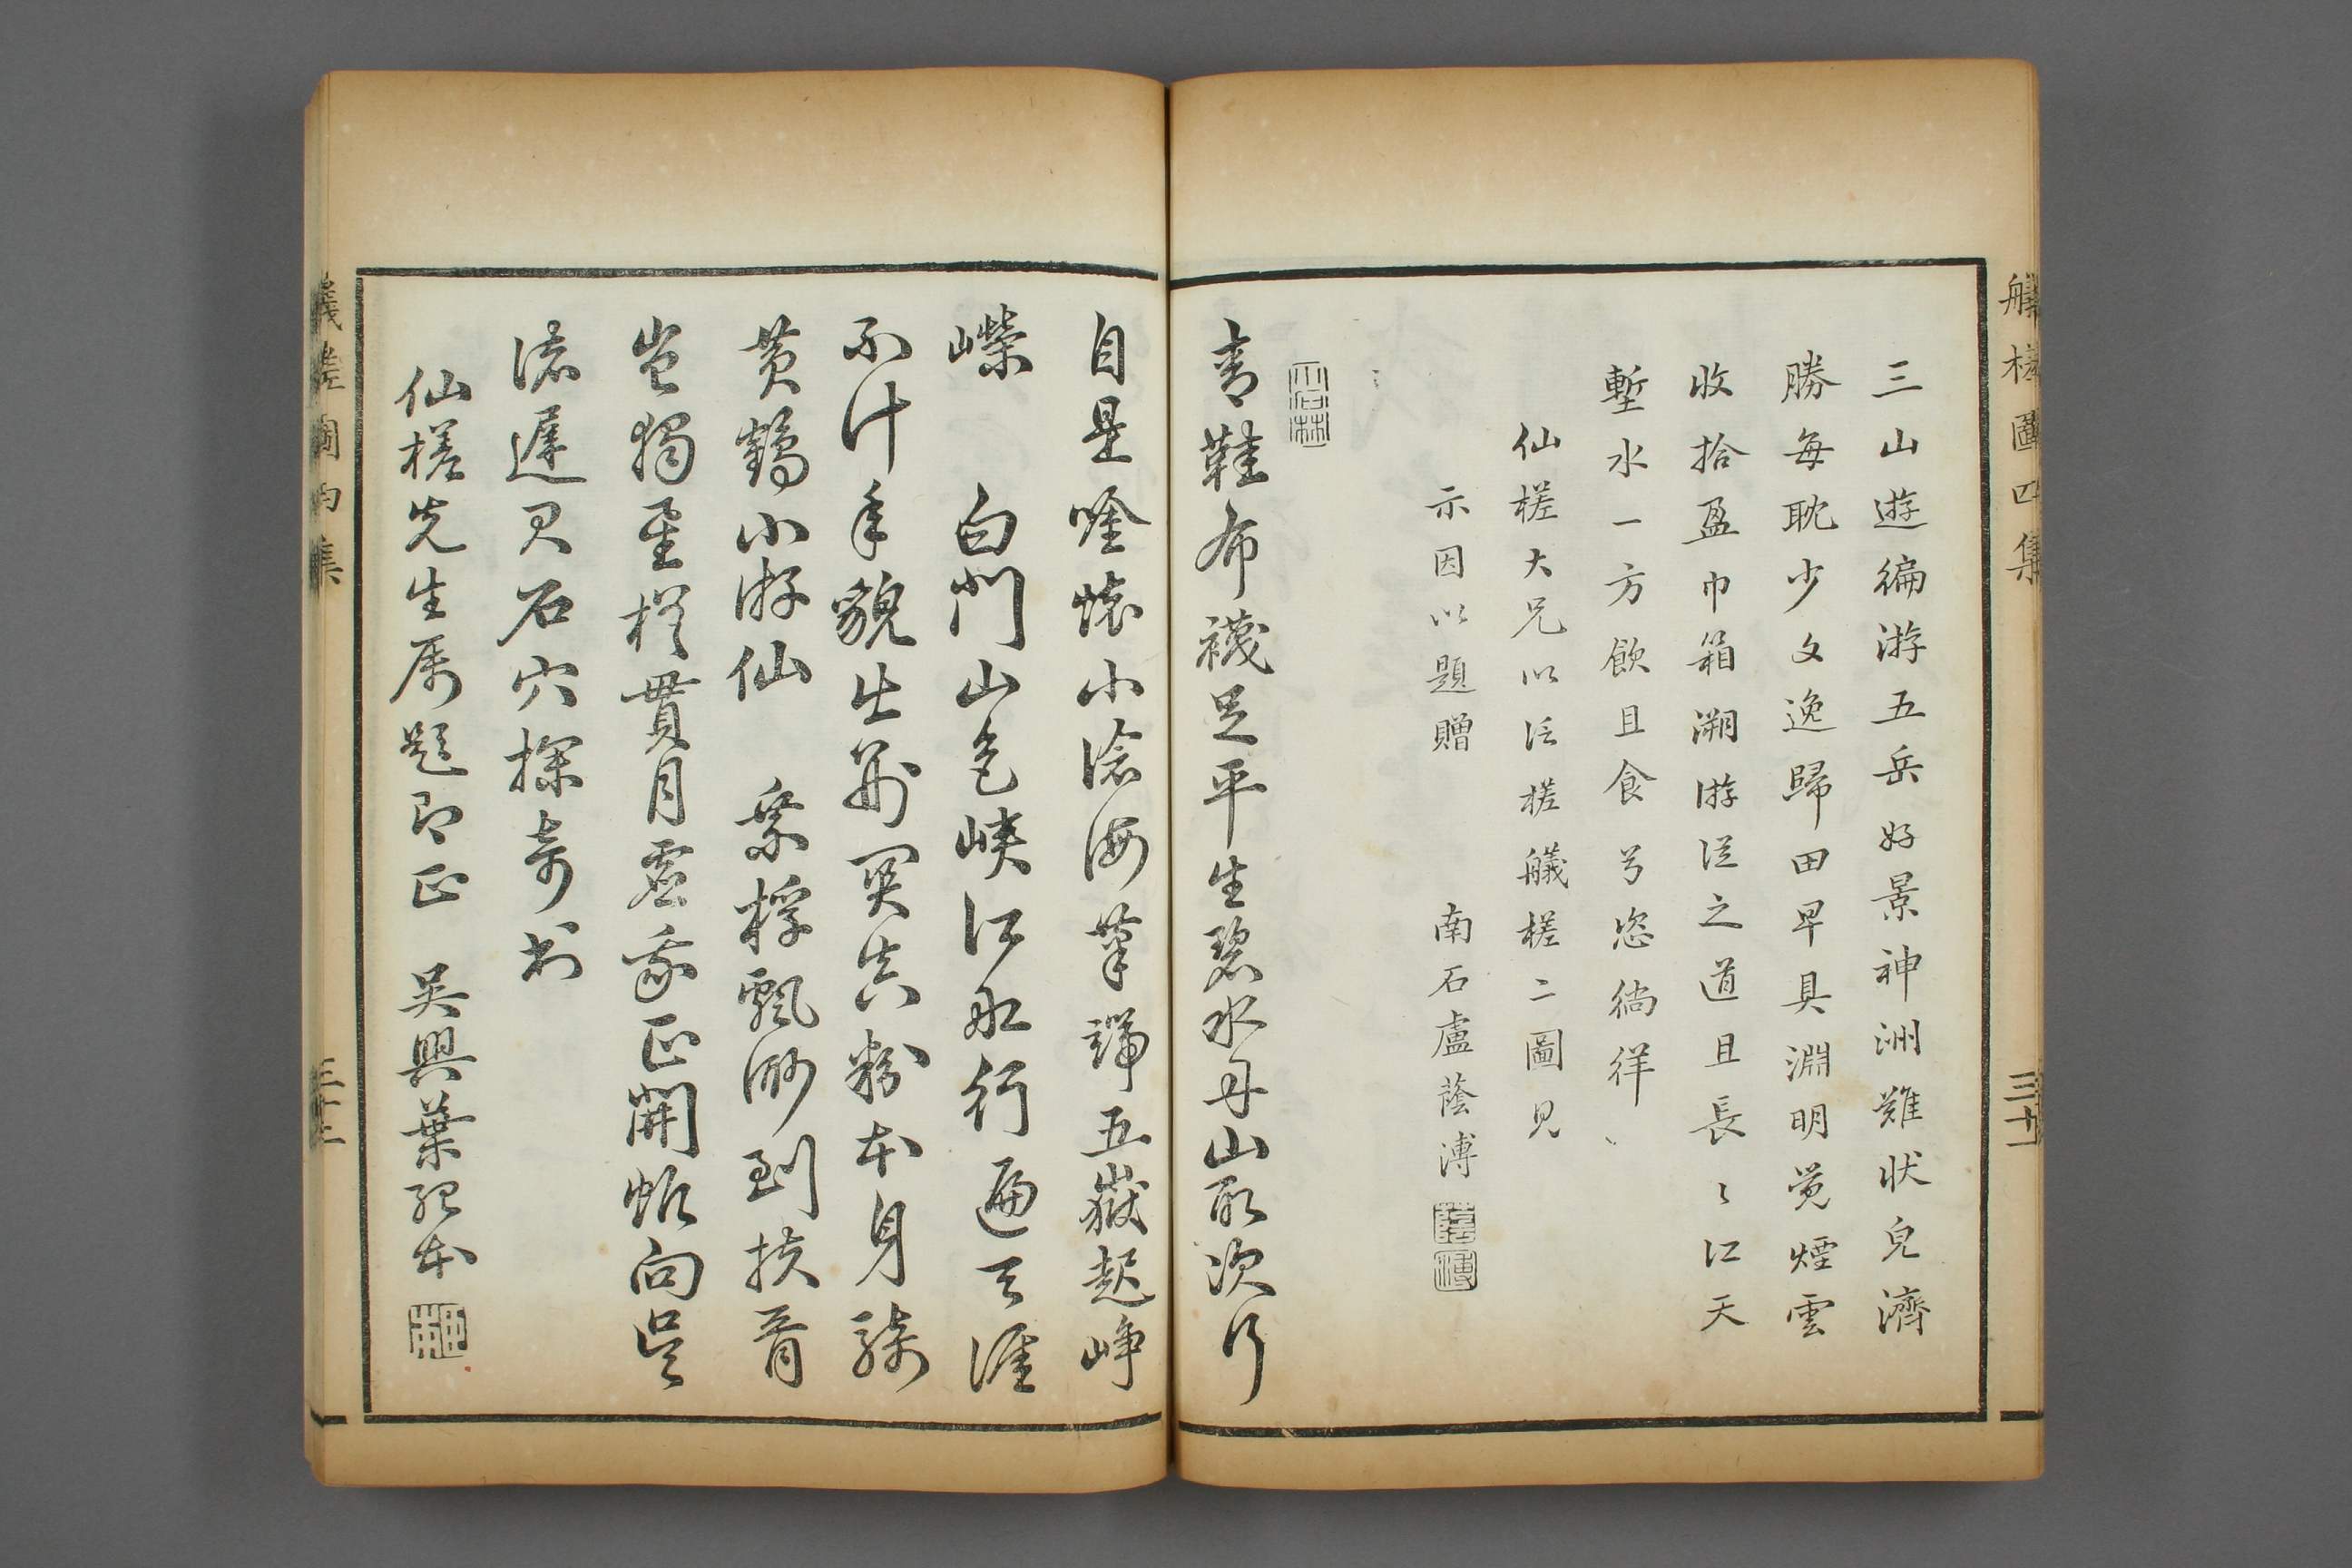 艤槎圖四集
三十一
三山遊徧游五岳好景神洲難狀皃濟
勝每耽少文逸歸田早具淵明覺煙雲
收拾盈巾箱溯游從之道且長〻江天
塹水一方飲且食兮恣徜徉
仙槎大兄以泛槎艤槎二圖見
示因以題贈　南石盧蔭溥
青鞋布襪足平生碧水丹山取次行
自是噇懷小滄海筆端五嶽起崢
嶸　白門山色峽江舡行遍天涯
不計年貌出荊關真粉本身騎
黃鶴小游仙　乘桴飄渺到扶胥
豈獨星槎貫月虛我正開帆向吳
流遲君石穴探奇書
仙槎先生属題即正　吳興葉紹本
艤槎圖四集